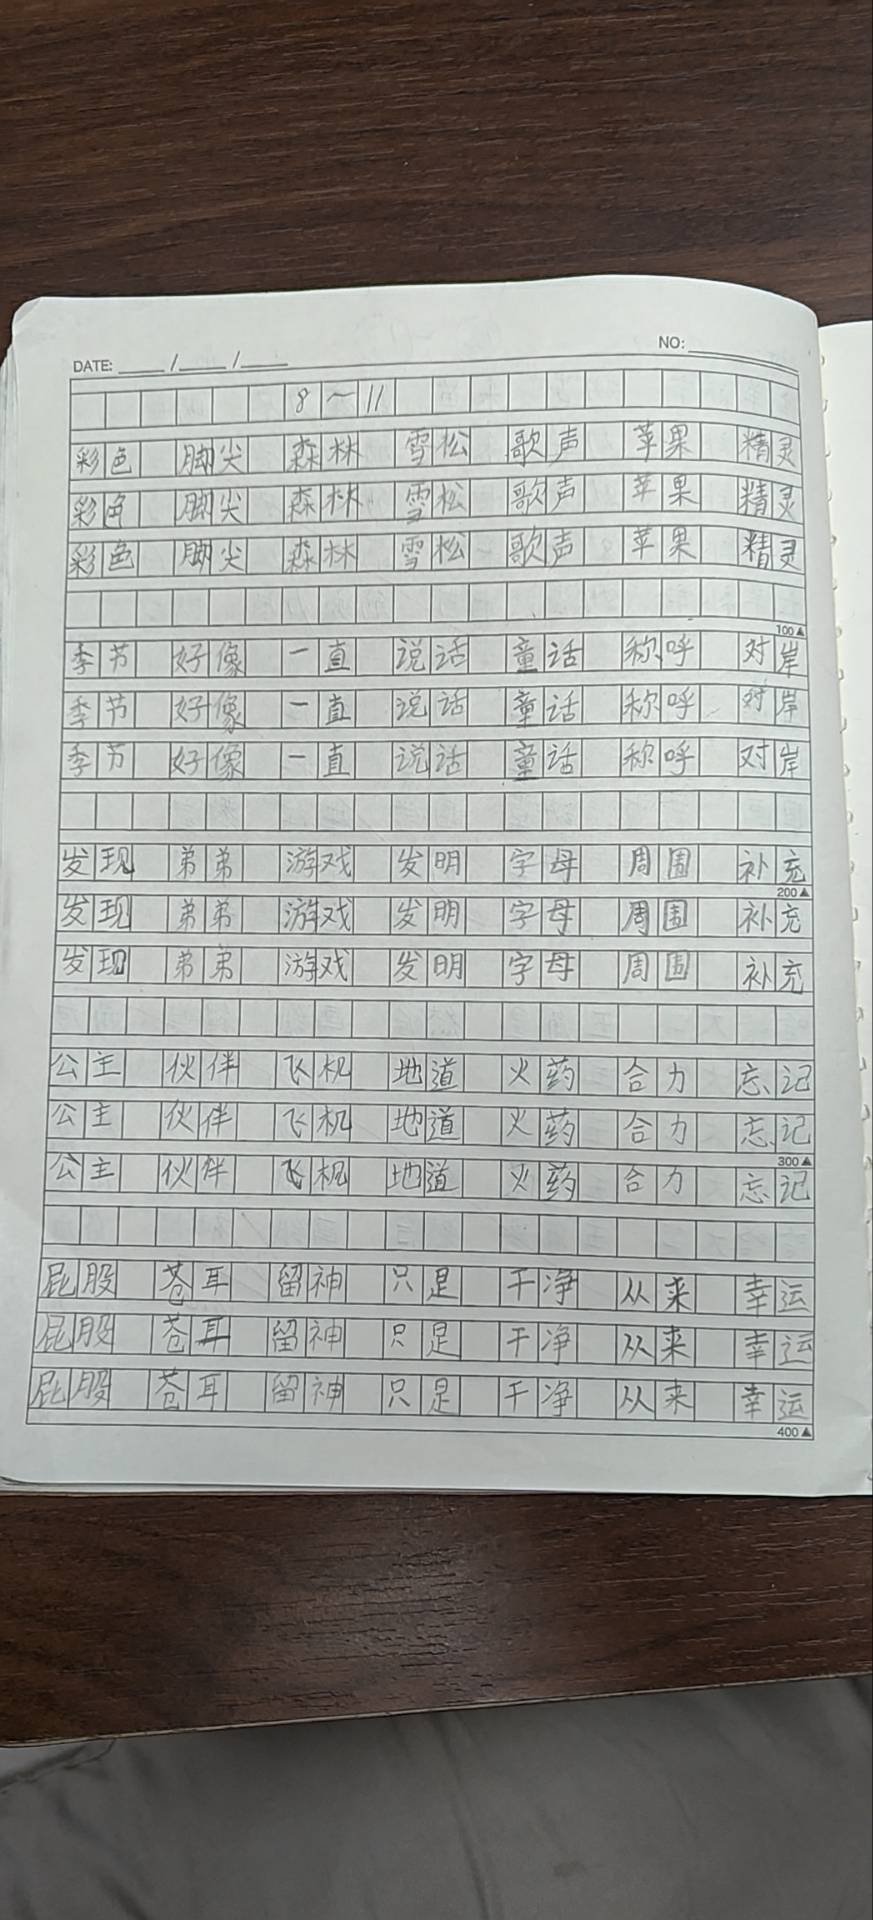 DATE: ____/____/____ NO:________
8～11
彩色 脚尖 森林 雪松 歌声 苹果 精灵
彩色 脚尖 森林 雪松 歌声 苹果 精灵
彩色 脚尖 森林 雪松 歌声 苹果 精灵
100▲
季节 好像 一直 说话 童话 称呼 对岸
季节 好像 一直 说话 童话 称呼 对岸
季节 好像 一直 说话 童话 称呼 对岸
发现 弟弟 游戏 发明 字母 周围 补充
200▲
发现 弟弟 游戏 发明 字母 周围 补充
发现 弟弟 游戏 发明 字母 周围 补充
公主 伙伴 飞机 地道 火药 合力 忘记
公主 伙伴 飞机 地道 火药 合力 忘记
300▲
公主 伙伴 飞机 地道 火药 合力 忘记
屁股 苍耳 留神 只是 干净 从来 幸运
屁股 苍耳 留神 只是 干净 从来 幸运
屁股 苍耳 留神 只是 干净 从来 幸运
400▲